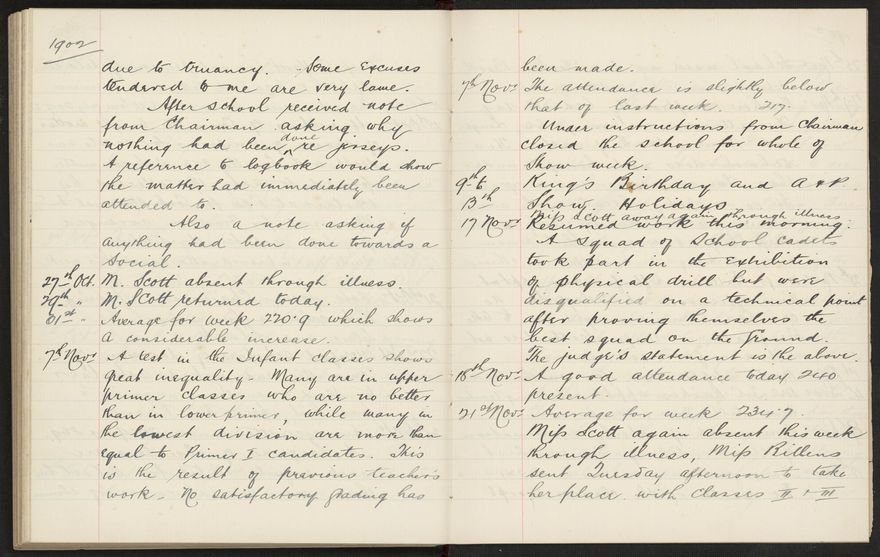 1902
due to truancy. Some excuses
tendered to me are very lame.
After school received note
from Chairman asking why
nothing had been done re jerseys.
A reference to logbook would show
the matter had immediately been
attended to.
Also a note asking if
anything had been done towards a
Social.
27th Oct. M. Scott absent through illness.
29th " M. Scott returned today.
31st " Average for week 220.9 which shows
a considerable increase.
7th Novr A test in the Infant classes shows
great inequality. Many are in upper
primer classes who are no better
than in lower primer, while many in
the lowest division are more than
equal to Primer I candidates. This
is the result of previous teacher's
work. No satisfactory grading has
been made.
7th Novr The attendance is slightly below
that of last week. 217.
Under instructions from Chairman
closed the school for whole of
Show week.
9th to King's Birthday and A & P.
13th Show. Holidays
Miss Scott away again through illness
17 Novr Resumed work this morning.
A squad of School cadets
took part in the exhibition
of physical drill but were
disqualified on a technical point
after proving themselves the
best squad on the ground.
The judge's statement is the above.
18th Novr A good attendance today 240
present.
21st Novr Average for week 234.7.
Miss Scott again absent this week
through illness, Miss
sent Tuesday afternoon to take
her place with Classes II & III